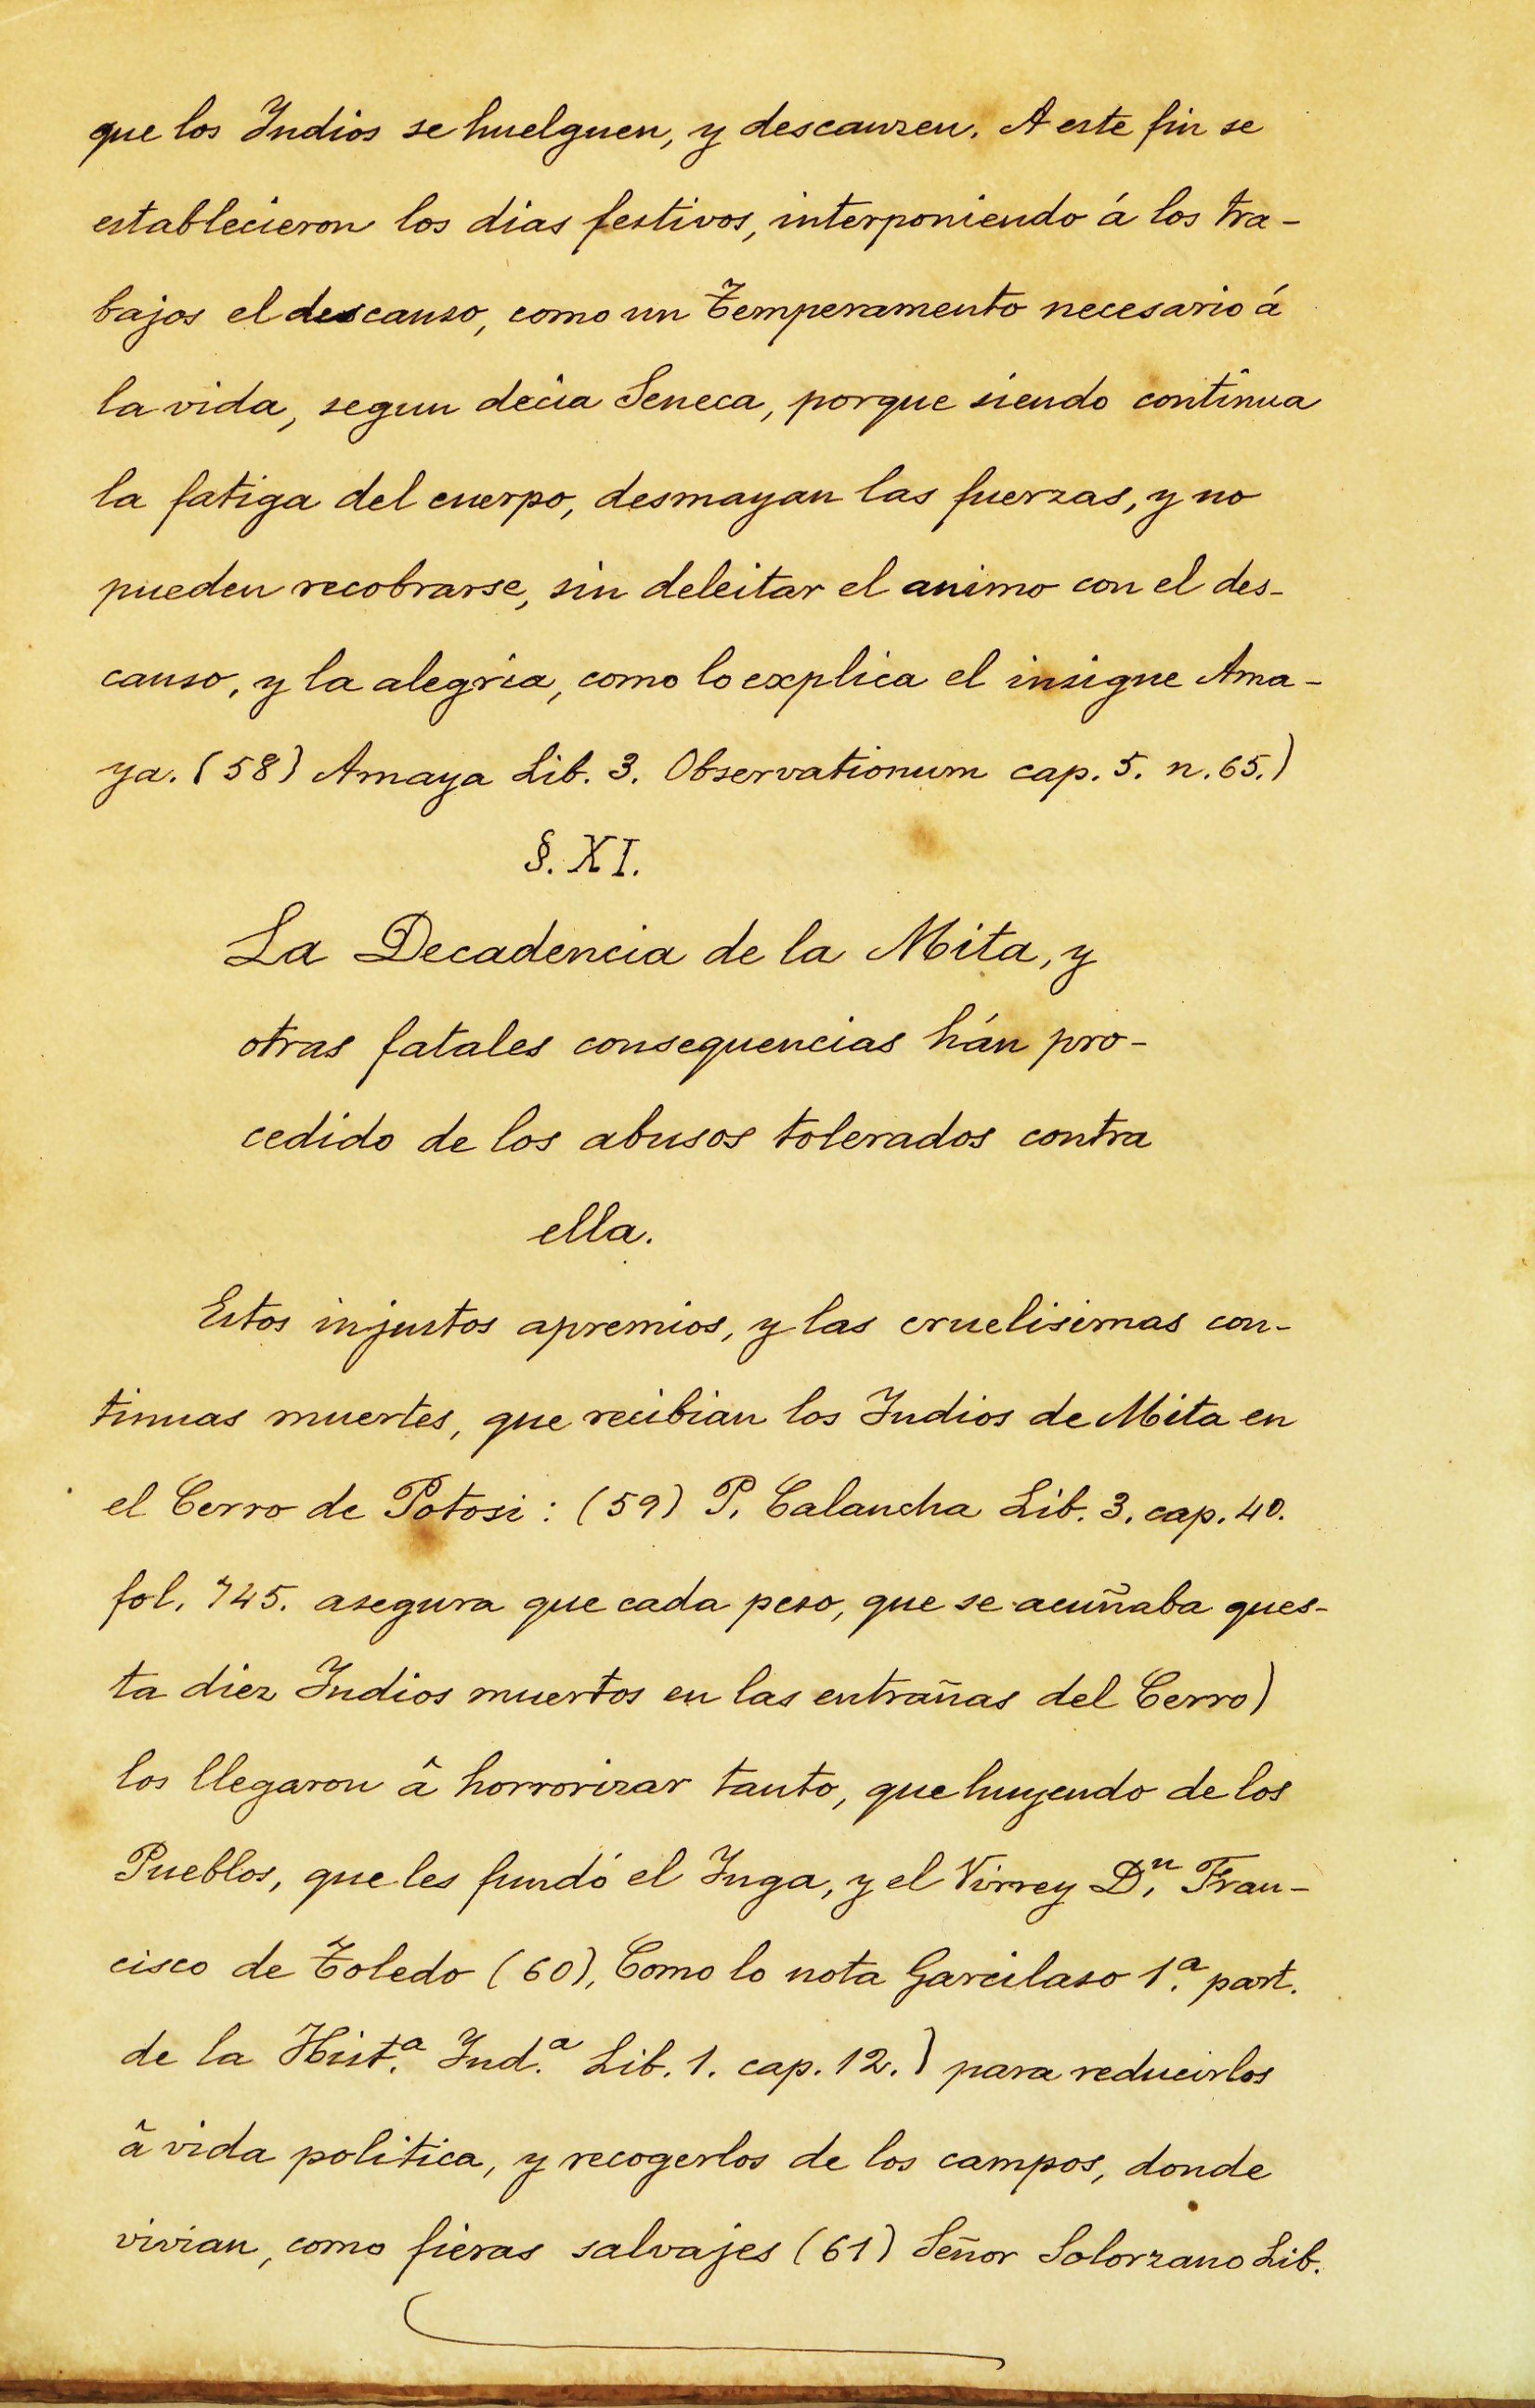 que los Indios se huelguen, y descanzen. A este fin se
establecieron los dias festivos, interponiendo á los tra-
bajos el descanso, como un Temperamento necesario á
la vida, segun decia Seneca, porque siendo continua
la fatiga del cuerpo, desmayan las fuerzas, y no
pueden recobrarse, sin deleitar el animo con el des-
canso, y la alegria, como lo explica el insigne Ama-
ya. (58) Amaya Lib. 3. Observationum cap. 5. n. 65.)
§. XI.
La Decadencia de la Mita, y
otras fatales consequencias hán pro-
cedido de los abusos tolerados contra
ella.
Estos injustos apremios, y las cruelisimas con-
tinuas muertes, que recibian los Indios de Mita en
el Cerro de Potosi : (59) P. Calancha Lib. 3. cap. 40.
fol. 745. asegura que cada peso, que se acuñaba ques-
ta diez Indios muertos en las entrañas del Cerro)
los llegaron â horrorizar tanto, que huyendo de los
Pueblos, que les fundó el Inga, y el Virrey D.ⁿ Fran-
cisco de Toledo (60). Como lo nota Garcilaso 1.ª part.
de la Hist.ª Ind.ª Lib. 1. cap. 12.) para reducirlos
â vida politica, y recogerlos de los campos, donde
vivian, como fieras salvajes (61) Señor Solorzano Lib.